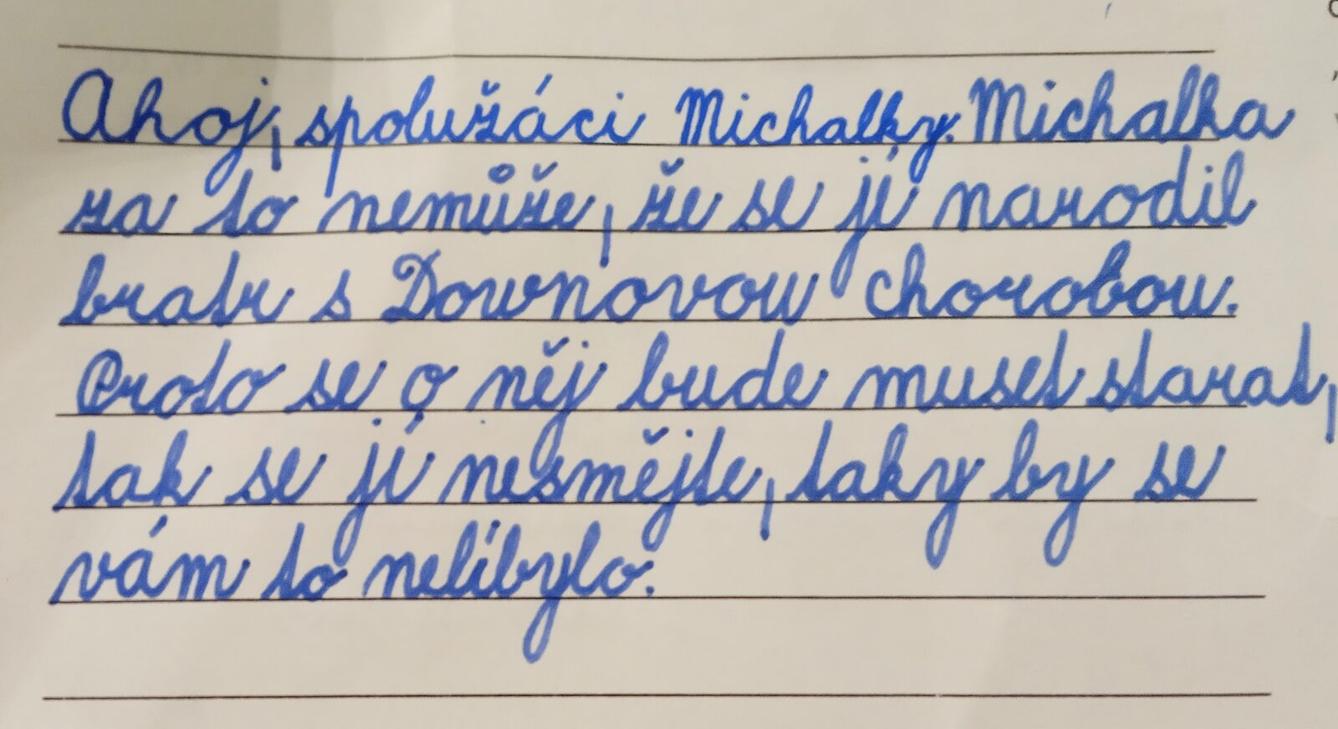 Ahoj, spolužáci Michalky. Michalka
za to nemůže, že se jí narodil
bratr s Downovou chorobou.
Proto se o něj bude muset starat,
tak se jí nesmějte, taky by se
vám to nelíbylo.